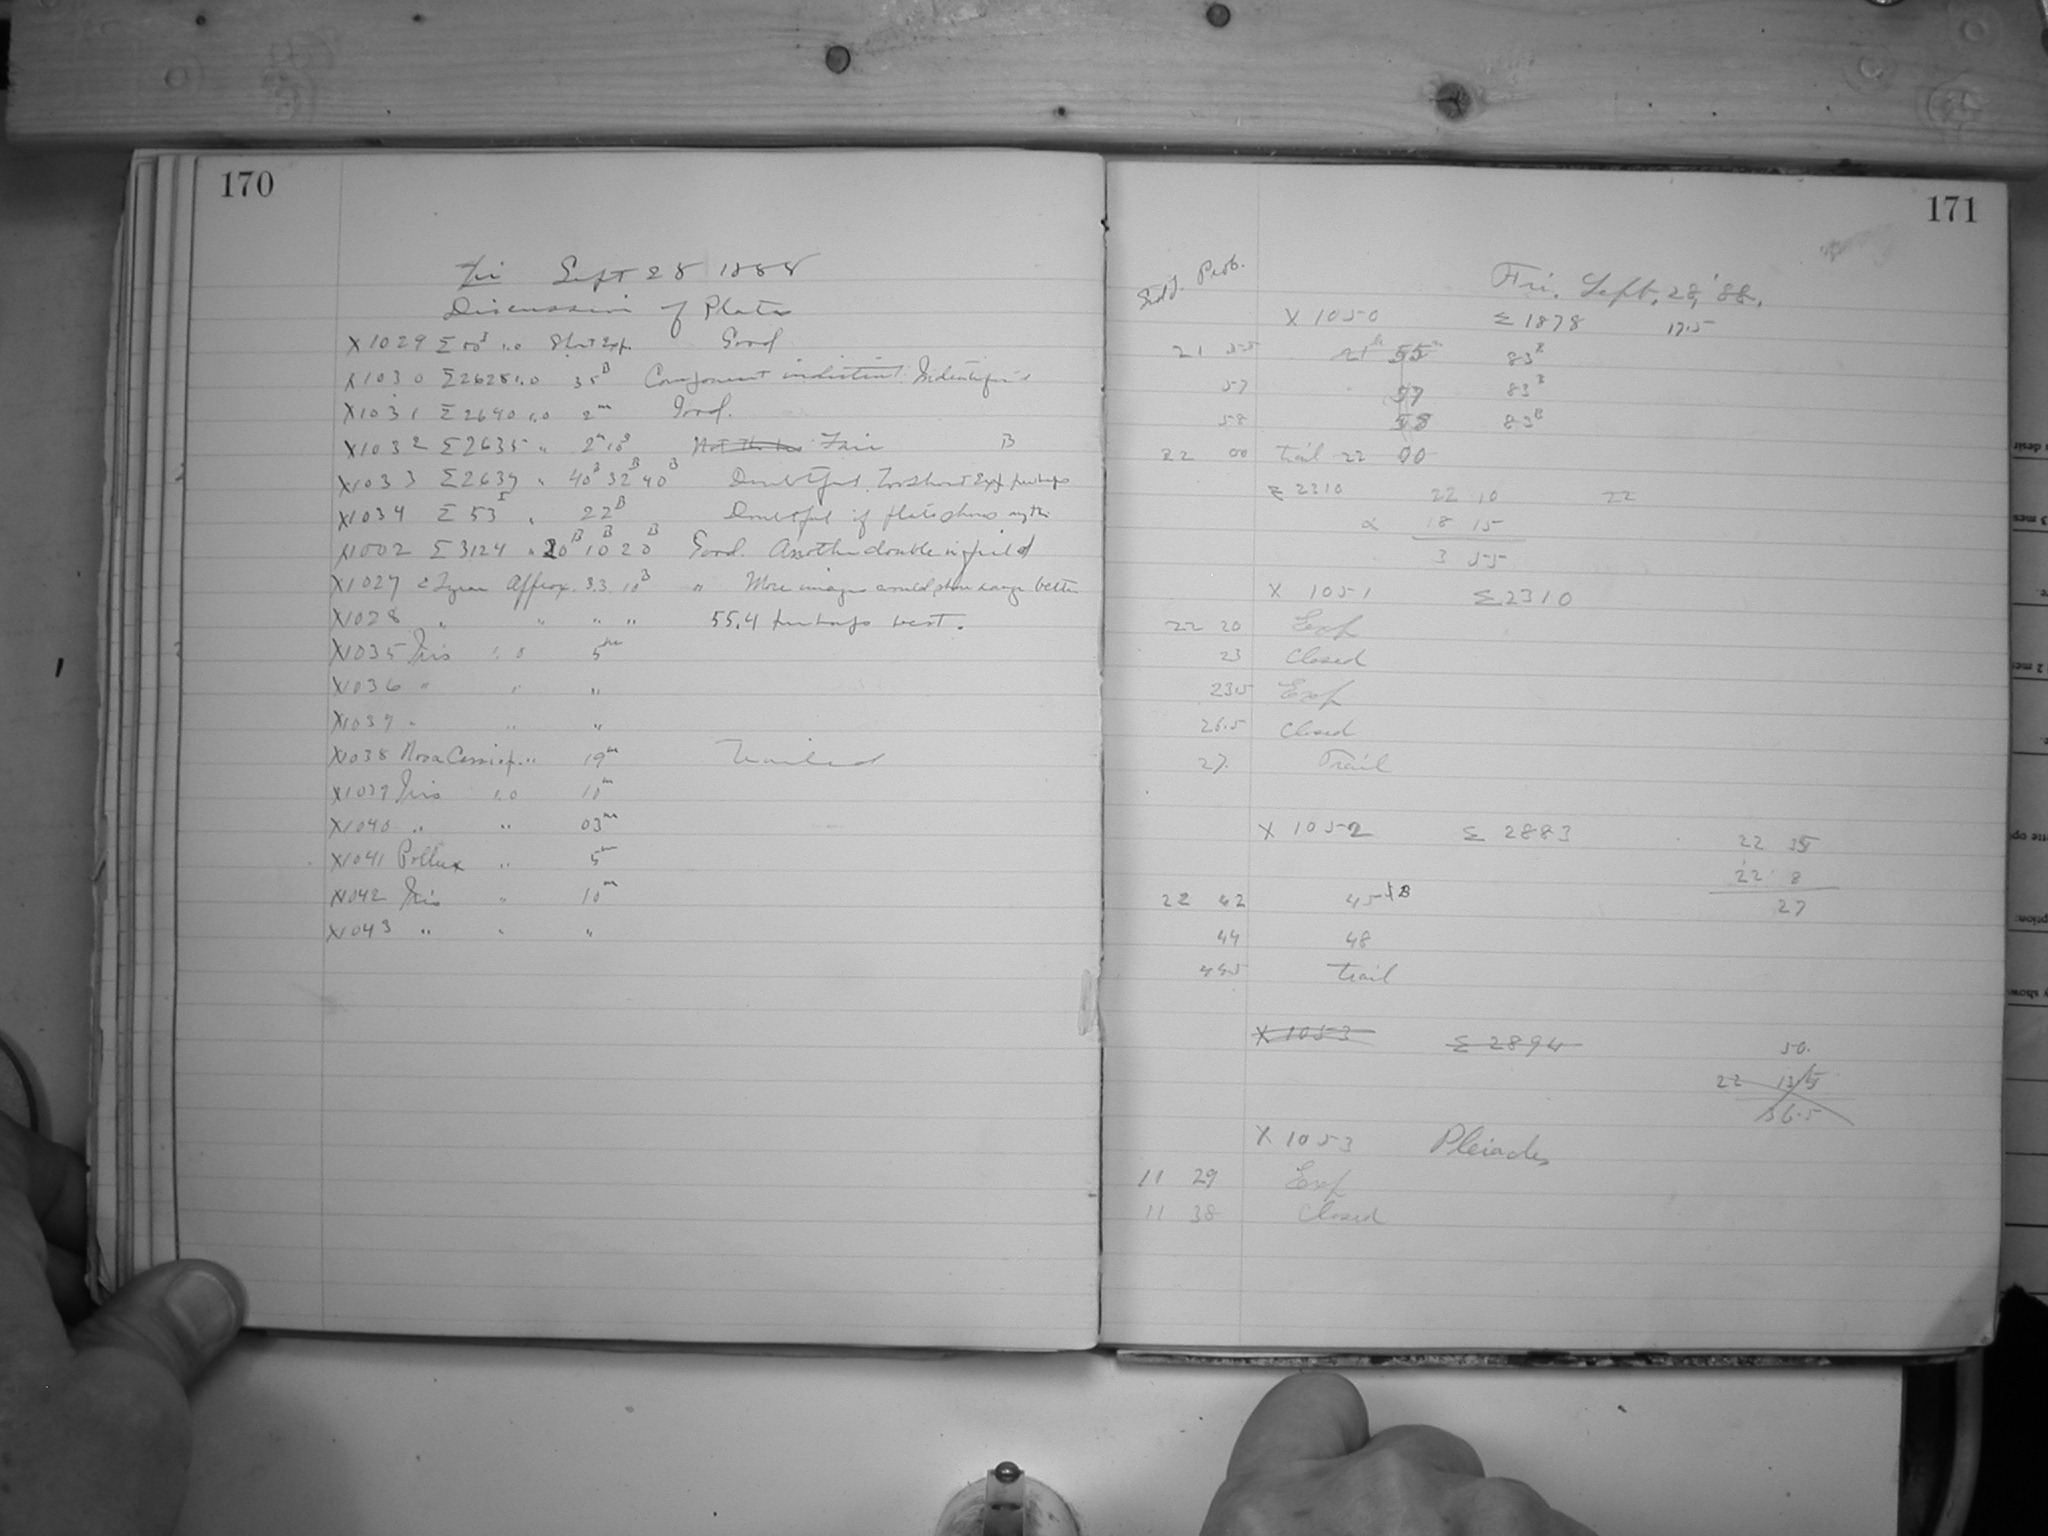 170
Fri Sept 28 1888
Discussion of Plates
X1029 Σ 50 I 1.0 Short Exp. Good
X1030 Σ2628 1.0 35 B Component indistinct
X1031 Σ2640 1.0 2m Good.
X1032 Σ2635 " 2m 10s Fair B
X1033 Σ2637 " 40 B 32 B 40 B Doubtful. Too Short Exp perhaps
X1034 Σ 53 I " 22 B Doubtful if plate shows anything
X1002 Σ 3124 " 20 B 10 B 20 B Good. Another double in field
X1027 ε Lyrae Approx. 3.3. 10 B " More images would show range better
X1028 " " " " 55.4 perhaps best.
X1035 Iris 1.0 5m
X1036 " " "
X1037 " " "
X1038 Nova Cassiop. " 19m Trailed
X1039 Iris 1.0 10m
X1040 " " 03m
X1041 Pollux " 5m
X1042 Iris " 10m
X1043 " " "
171
Prob.
Fri. Sept. 28, '88.
X 1050 Σ 1878 17.5
21 55 21h 55m 83 B
57 57 83 B
58 58 83 B
22 00 trail 22 00
Σ 2310 22 10 22
α 18 15
3 55
X 1051 Σ 2310
22 20 Exp
23 Closed
23.5 Exp
26.5 Closed
27. Trail
X 1052 Σ 2883 22 35
22 8
22 42 45 B 27
44 48
44.5 trail
X 1053 Σ 2894 50.
22 13.5
36.5
X 1053 Pleiades
11 29 Exp
11 38 Closed